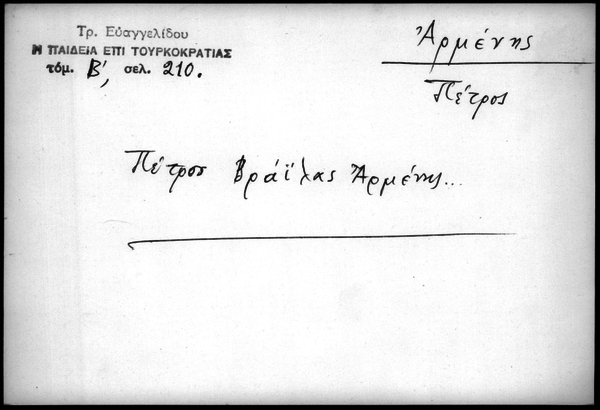 Τρ. Εὐαγγελίδου
Η ΠΑΙΔΕΙΑ ΕΠΙ ΤΟΥΡΚΟΚΡΑΤΙΑΣ
τόμ. Β', σελ. 210.
Ἀρμένης
Πέτρος
Πέτρος Βράϊλας Ἀρμένης...